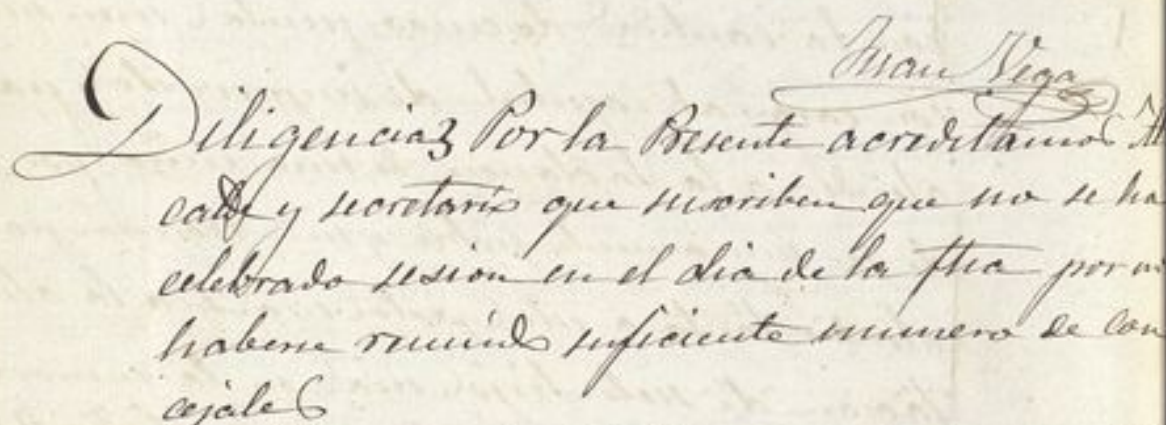 Juan Vega
Diligencia; Por la Presente acreditamos Al
calde y secretario que suscriben que no se ha
celebrado sesion en el dia de la fha por no
haberse reunido suficiente numero de con
cejales